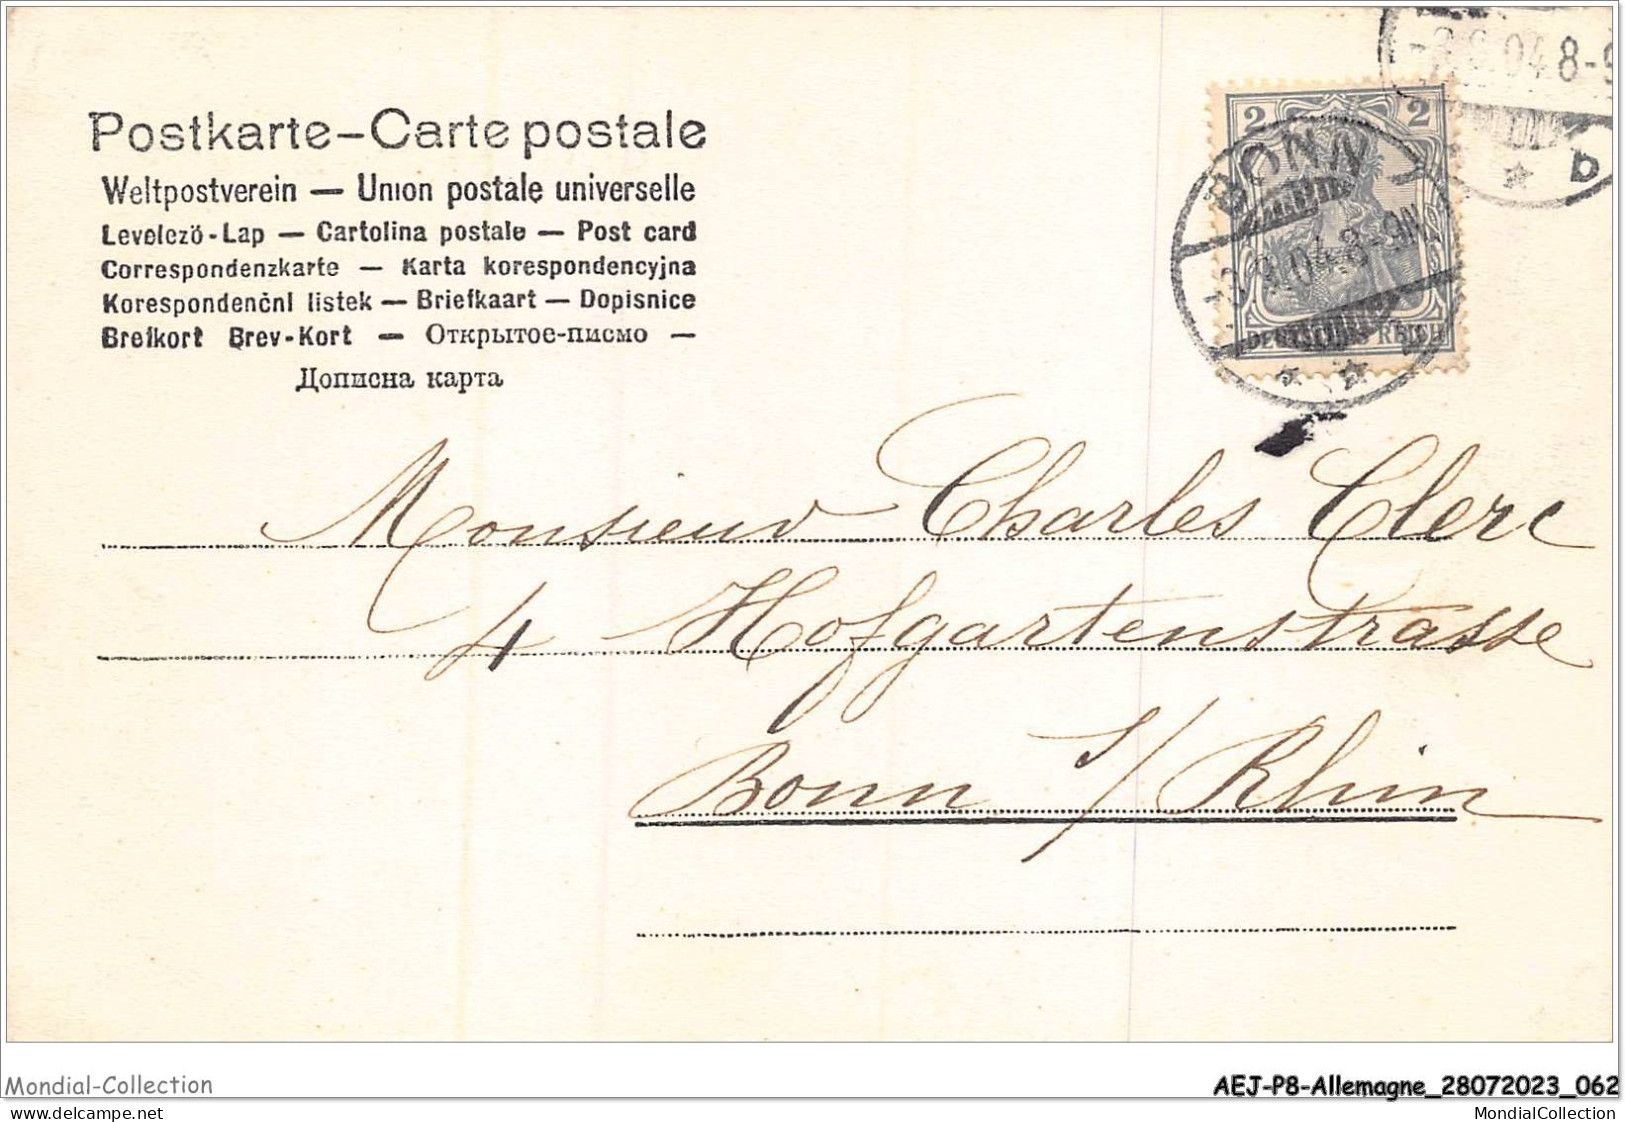 Postkarte-Carte postale
Weltpostverein — Union postale universelle
Levelező-Lap — Cartolina postale — Post card
Correspondenzkarte — Karta korespondencyjna
Korespondenčnl listek — Briefkaart — Dopisnice
Brefkort Brev-Kort — Открытое-писмо —
Дописна карта
2 2
BONN
3.9.04.8-9N.
DEUTSCHES REICH
04 8-9
b
Monsieur Charles Clerc
4 Hofgartenstrasse
Bonn s/Rhin
Mondial-Collection
AEJ-P8-Allemagne_28072023_062
delcampe.net
MondialCollection